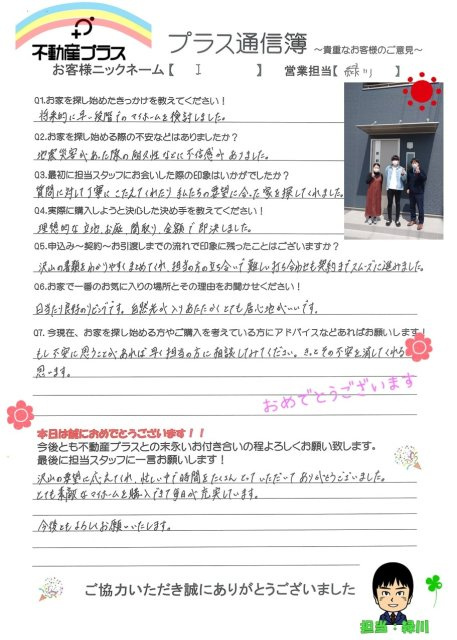 不動産プラス
プラス通信簿 ～貴重なお客様のご意見～
お客様ニックネーム【 I 】 営業担当【 緑川 】
Q1.お家を探し始めたきっかけを教えてください！
将来的に早い段階でのマイホームを検討しました。
Q2.お家を探し始める際の不安などはありましたか？
地震災害があった際の耐久性などに不信感がありました。
Q3.最初に担当スタッフにお会いした際の印象はいかがでしたか？
質問に対して丁寧にこたえてくれたり私たちの要望に合った家を探してくれました。
Q4.実際に購入しようと決心した決め手を教えてください！
理想的な立地、お庭、間取り、金額で即決しました。
Q5.申込み～契約～お引渡しまでの流れで印象に残ったことはございますか？
沢山の書類をわかりやすくまとめてくれ、担当の方の立ち合いで難しい打ち合わせも契約までスムーズに進みました。
Q6.お家で一番のお気に入りの場所とその理由をお聞かせください！
日当たり良好のリビングです。自然光が入りあたたかくとても居心地がいいです。
Q7.今現在、お家を探し始める方やご購入を考えている方にアドバイスなどあればお願いします！
もし不安に思うことがあれば早く担当の方に相談してみてください。きっとその不安を消してくれると
思います。
おめでとうございます
本日は誠におめでとうございます！！
今後とも不動産プラスとの末永いお付き合いの程よろしくお願い致します。
最後に担当スタッフに一言お願いします！
沢山の要望に応えてくれ、忙しい中で時間をたくさんとっていただいてありがとうございました。
とても素敵なマイホームを購入できて毎日が充実しています。
今後ともよろしくお願いいたします。
ご協力いただき誠にありがとうございました
担当：緑川